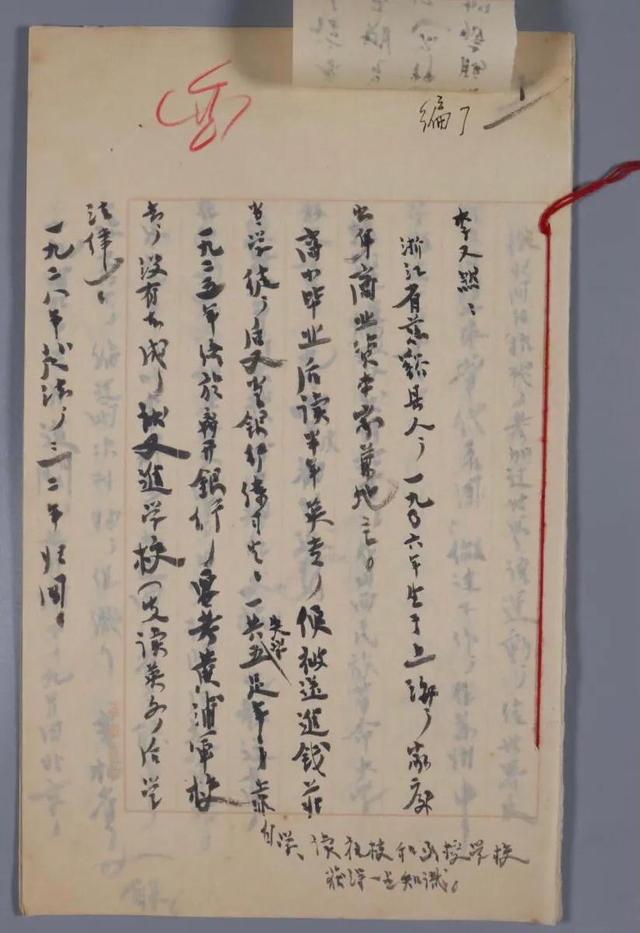 编了
李又然：
浙江省慈谿县人，一九〇六年生于上海，家庭
出身商业资本家兼地主。
高小毕业后读半年英专，便被送进钱莊
当学徒，后又当银行练习生，一共失学五足年，靠
自学、读夜校和函授学校
获得一点知识。
一九二五年终于离开银行，要考黄浦军校
去，没有去成，就又进学校（先读英文，后学
法律）。
一九二八年赴法，三二年归国。